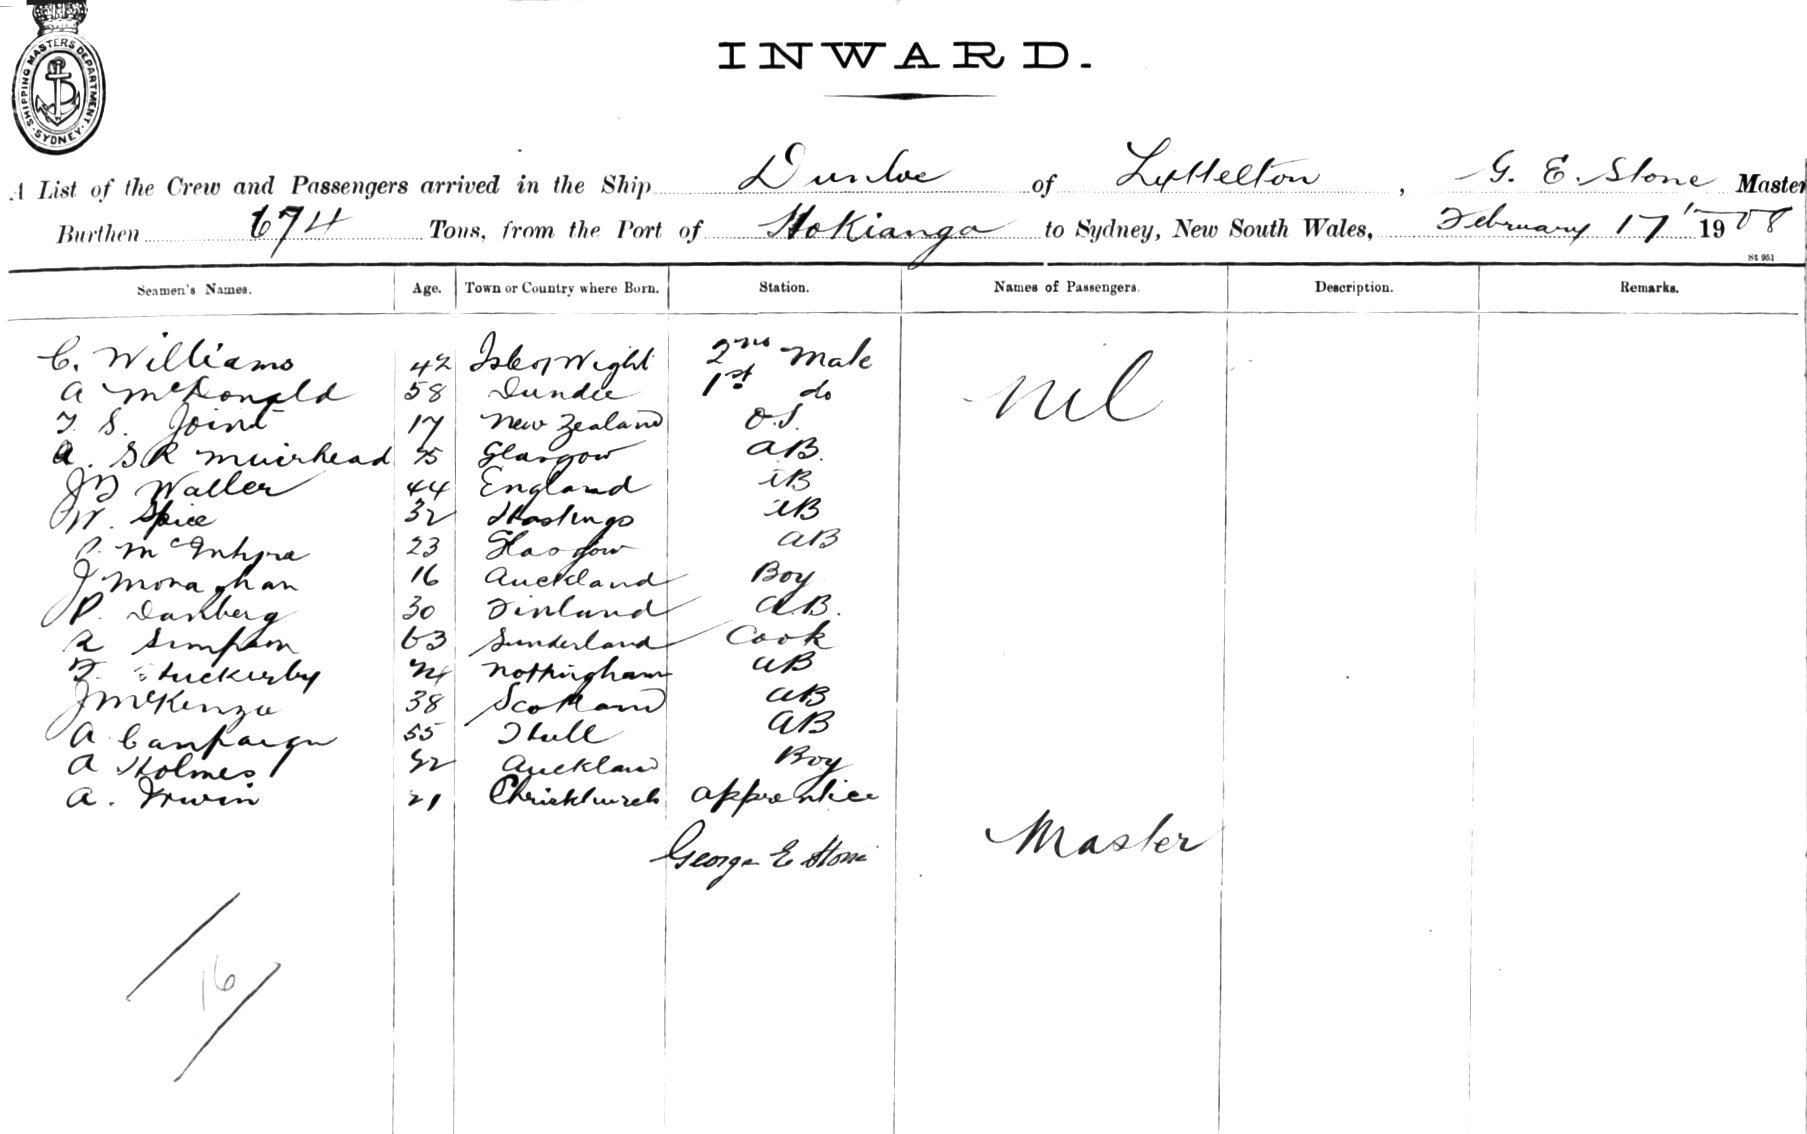 SHIPPING MASTERS DEPARTMENT
SYDNEY
INWARD.
A List of the Crew and Passengers arrived in the Ship Dunloe of Lyttelton, G. E. Stone Master
Burthen 674 Tons, from the Port of Hokianga to Sydney, New South Wales, February 17 1908
St 951
Seamen's Names. Age. Town or Country where Born. Station. Names of Passengers. Description. Remarks.
C. Williams 42 Isle of Wight 2nd Mate nil
A McDonald 58 Dundee 1st do
T. S. Joint 17 New Zealand O.S.
A. S R Muirhead Glasgow AB.
Waller 44 England AB
W. Spice 32 Hastings AB
McIntyre 23 Glasgow AB
J Monaghan 16 Auckland Boy
P. Danberg 30 Finland A.B.
R Simpson 63 Sunderland Cook
F. Huckerby Nottingham AB
J McKenzie 38 Scotland AB
A Campaign 55 Hull AB
A Holmes Auckland Boy
A. Irwin 21 Christchurch apprentice
George E Stone Master
16